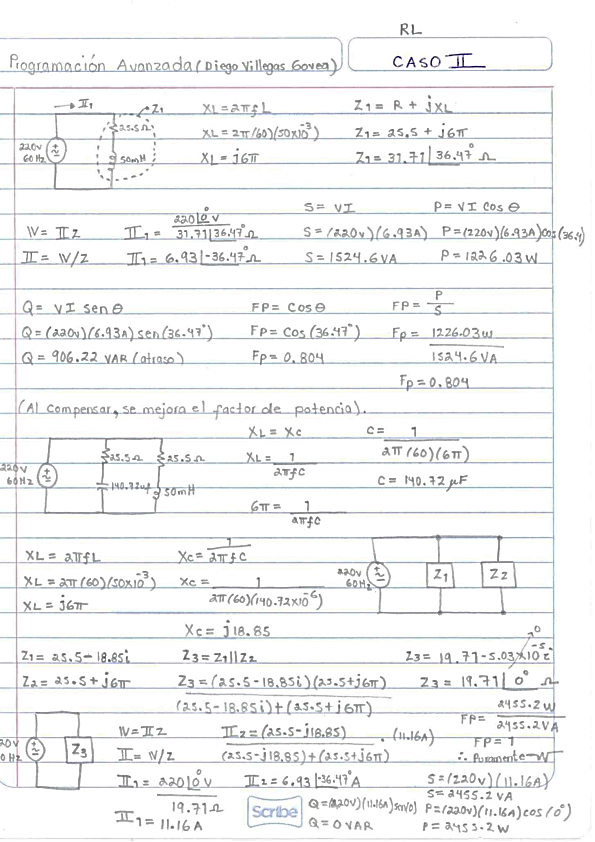 RL
Programación Avanzada (Diego Villegas Govea)
CASO II
→ II₁
Z₁
25.5Ω
50mH
220v
60Hz
XL = 2πfL
XL = 2π(60)(50x10⁻³)
XL = j6π
Z₁ = R + jXL
Z₁ = 25.5 + j6π
Z₁ = 31.71∠36.47° Ω
V = IIZ
II = V/Z
II₁ = 220∠0° V / 31.71∠36.47° Ω
II₁ = 6.93∠-36.47° Ω
S = VI
S = (220v)(6.93A)
S = 1524.6 VA
P = VI cos θ
P = (220v)(6.93A)cos(36.4)
P = 1226.03 W
Q = VI sen θ
Q = (220v)(6.93A) sen(36.47°)
Q = 906.22 VAR (atraso)
FP = cos θ
FP = cos(36.47°)
Fp = 0.804
FP = P/S
Fp = 1226.03w / 1524.6 VA
Fp = 0.804
(Al compensar, se mejora el factor de potencia).
220V
60Hz
25.5Ω
25.5Ω
140.72uf
50mH
XL = Xc
XL = 1/2πfC
6π = 1/2πfC
C = 1/2π(60)(6π)
C = 140.72 μF
XL = 2πfL
XL = 2π(60)(50x10⁻³)
XL = j6π
Xc = 1/2πfC
Xc = 1/2π(60)(140.72x10⁻⁶)
Xc = j18.85
220v
60Hz
Z1
Z2
Z₁ = 25.5 - 18.85i
Z₂ = 25.5 + j6π
Z₃ = Z₁||Z₂
Z₃ = (25.5-18.85i)(25.5+j6π) / (25.5-18.85i)+(25.5+j6π)
Z₃ = 19.71 - 5.03x10⁻⁵i
0
Z₃ = 19.71∠0° Ω
FP = 2455.2W / 2455.2VA
FP = 1
∴ Puramente W
20V
0Hz
Z3
V = IIZ
II = V/Z
II₁ = 220∠0° V / 19.71Ω
II₁ = 11.16 A
II₂ = (25.5-j18.85) / (25.5-j18.85)+(25.5+j6π) · (11.16A)
II₂ = 6.93∠-36.47° A
Q = (220v)(11.16A)sen(0)
Q = 0 VAR
S = (220v)(11.16A)
S = 2455.2 VA
P = (220v)(11.16A)cos(0°)
P = 2455.2W
Scribe